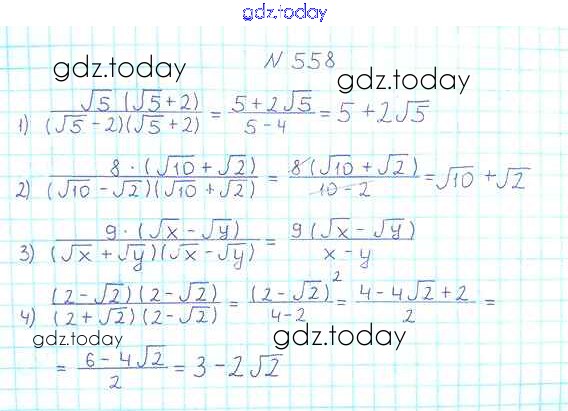 gdz.today
N 558
gdz.today gdz.today
1) √5 (√5+2) / (√5-2)(√5+2) = 5+2√5 / 5-4 = 5+2√5
2) 8·(√10+√2) / (√10-√2)(√10+√2) = 8(√10+√2) / 10-2 = √10+√2
3) 9·(√x-√y) / (√x+√y)(√x-√y) = 9(√x-√y) / x-y
4) (2-√2)(2-√2) / (2+√2)(2-√2) = (2-√2)² / 4-2 = 4-4√2+2 / 2 =
gdz.today gdz.today
= 6-4√2 / 2 = 3-2√2